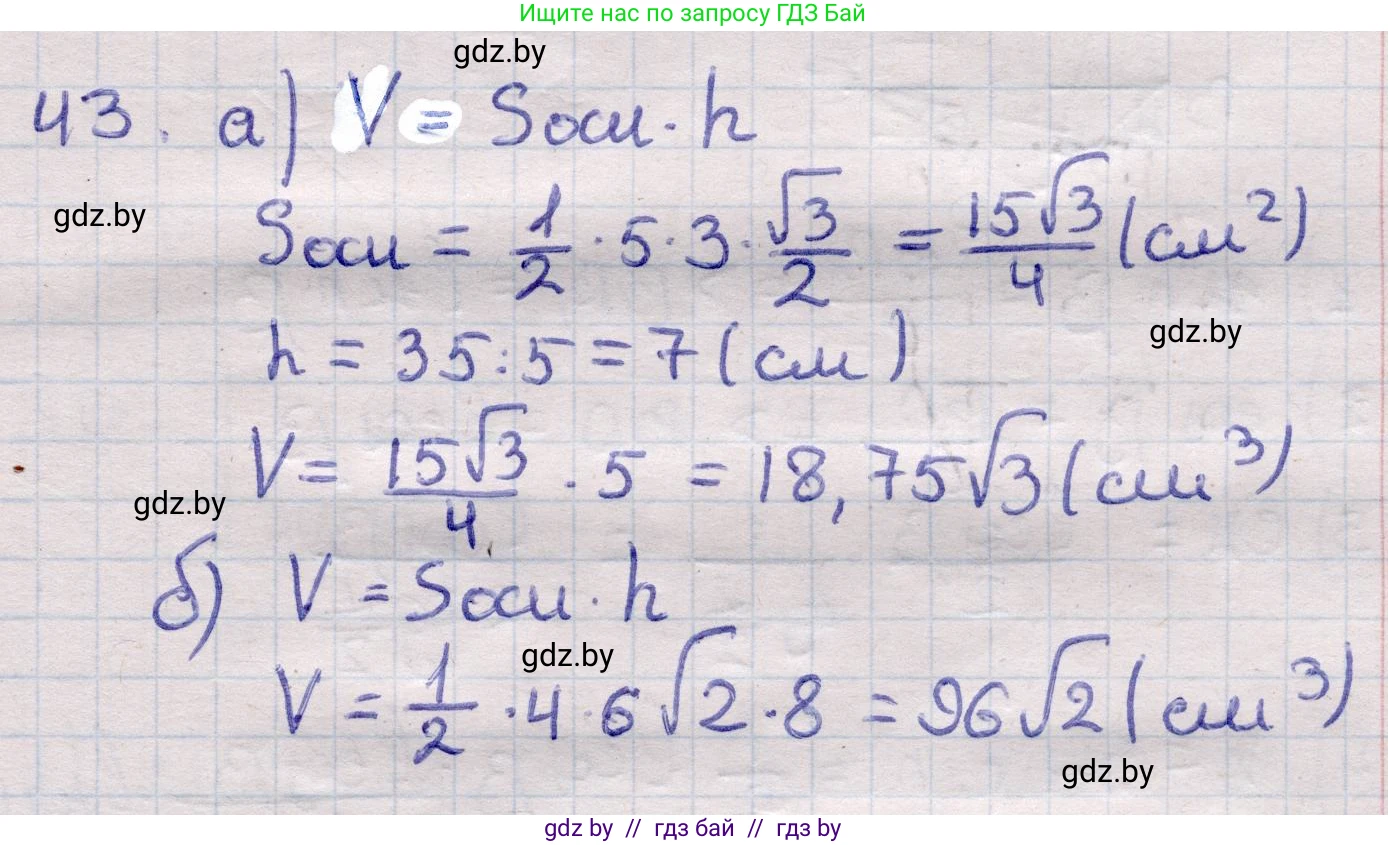 Ищите нас по запросу ГДЗ Бай
gdz.by
43. а) V = Sосн · h
gdz.by
Sосн = 1/2 · 5 · 3 · √3/2 = 15√3/4 (см²)
gdz.by
h = 35 : 5 = 7 (см)
V = 15√3/4 · 5 = 18,75√3 (см³)
gdz.by
б) V = Sосн · h
gdz.by
V = 1/2 · 4 · 6√2 · 8 = 96√2 (см³)
gdz.by
gdz by // гдз бай // гдз by